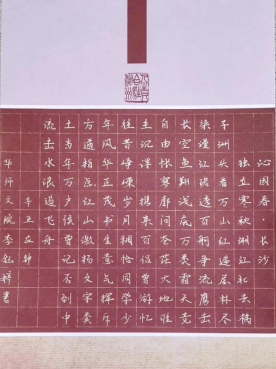 沁园春·长沙
独立寒秋湘江北去橘
子洲头看万山红遍层林尽
染漫江碧透百舸争流鹰击
长空鱼翔浅底万类霜天竞
自由怅寥廓问苍茫大地谁
主沉浮携来百侣曾游忆
往昔峥嵘岁月稠恰同学少
年风华正茂书生意气挥斥
方遒指点江山激扬文字粪
土当年万户侯曾记否到中
流击水浪遏飞舟
辛丑
华师文院李钰书